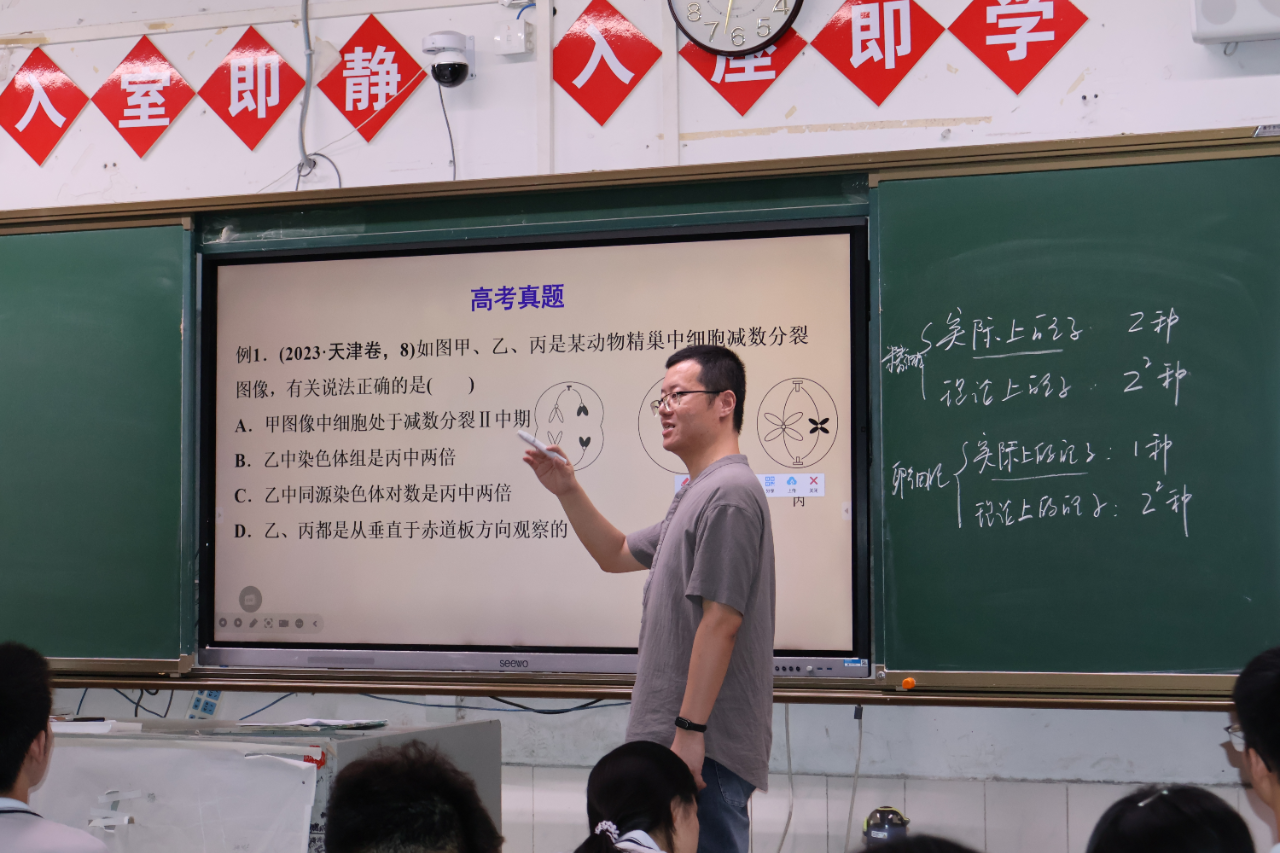 入室即静
入座即学
高考真题
例1．(2023·天津卷，8)如图甲、乙、丙是某动物精巢中细胞减数分裂
图像，有关说法正确的是(　　)
A．甲图像中细胞处于减数分裂Ⅱ中期
B．乙中染色体组是丙中两倍
C．乙中同源染色体对数是丙中两倍
D．乙、丙都是从垂直于赤道板方向观察的
丙
seewo
实际上 2种
理论上 2²种
卵 实际上的 : 1种
理论上的 : 2²种
8 7 6 5 4